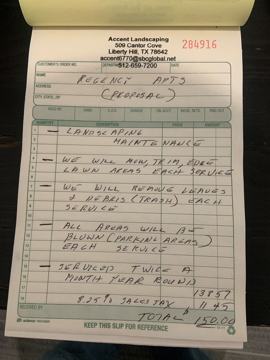 Accent Landscaping
509 Cantor Cove
Liberty Hill, TX 78642
accent6770@sbcglobal.net
512-659-7200
284916
CUSTOMER'S ORDER NO. DEPARTMENT DATE
NAME REGENCY APTS
ADDRESS (PROPOSAL)
CITY, STATE, ZIP
SOLD BY CASH C.O.D. CHARGE ON ACCT. MDSE. RETD. PAID OUT
DESCRIPTION PRICE AMOUNT
1 — LANDSCAPING
MAINTENANCE
— WE WILL MOW, TRIM, EDGE
LAWN AREAS EACH SERVICE
— WE WILL REMOVE LEAVES
& DEBRIS (TRASH) EACH
SERVICE
— ALL AREAS WILL BE
BLOWN (PARKING AREAS)
EACH SERVICE
— SERVICED TWICE A
MONTH YEAR ROUND
138.57
8.25% SALES TAX 11.43
RECEIVED BY TOTAL $ 150.00
KEEP THIS SLIP FOR REFERENCE